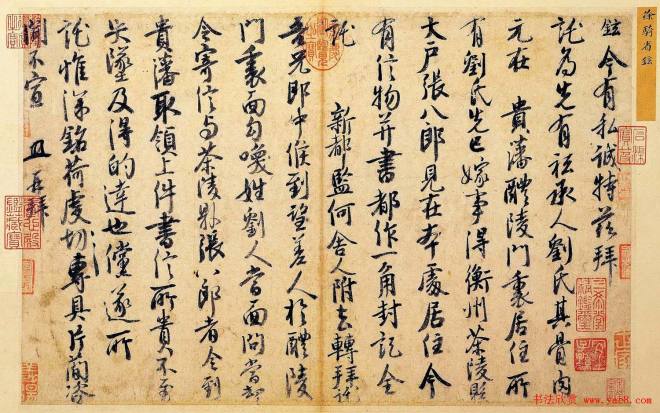 徐騎省鉉
鉉今有私誠特茲拜
託為先有祗承人劉氏其骨肉
元在 貴藩醴陵門裏居住所
有劉氏先已嫁事得衡州茶陵縣
大户張八郎見在本處居住今
有信物并書都作一角封記全
託 新都監何舍人附去轉拜託
吾兄郎中候到望差人於醴陵
門裏面勾喚姓劉人當面問當却
令寄信与茶陵縣張八郎者令到
貴藩取領上件書信所貴不至
失墜及得的達也儻遂所
託惟深銘荷虔切專具片簡咨
聞不宣 再拜
书法欣赏 www.yac8.com